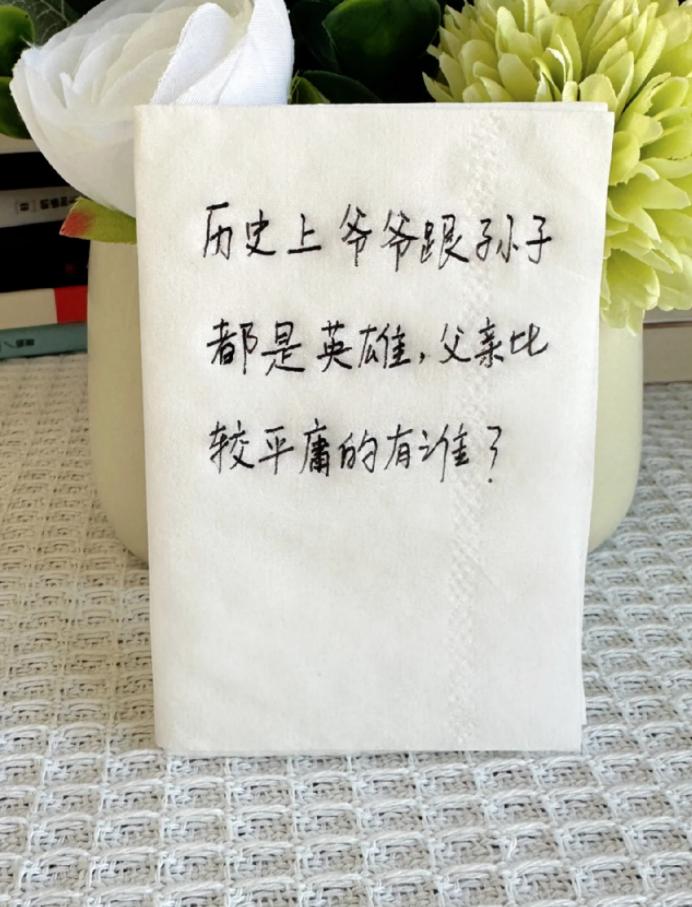 历史上爷爷跟孙子
都是英雄，父亲比
较平庸的有谁？